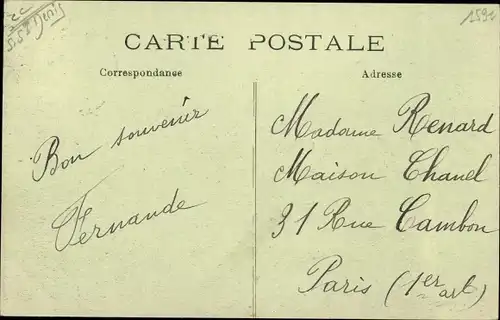 CARTE POSTALE
Correspondance
Adresse
Bon souvenir
Fernande
Madame Renard
Maison Chanel
31 Rue Cambon
Paris (1er art)